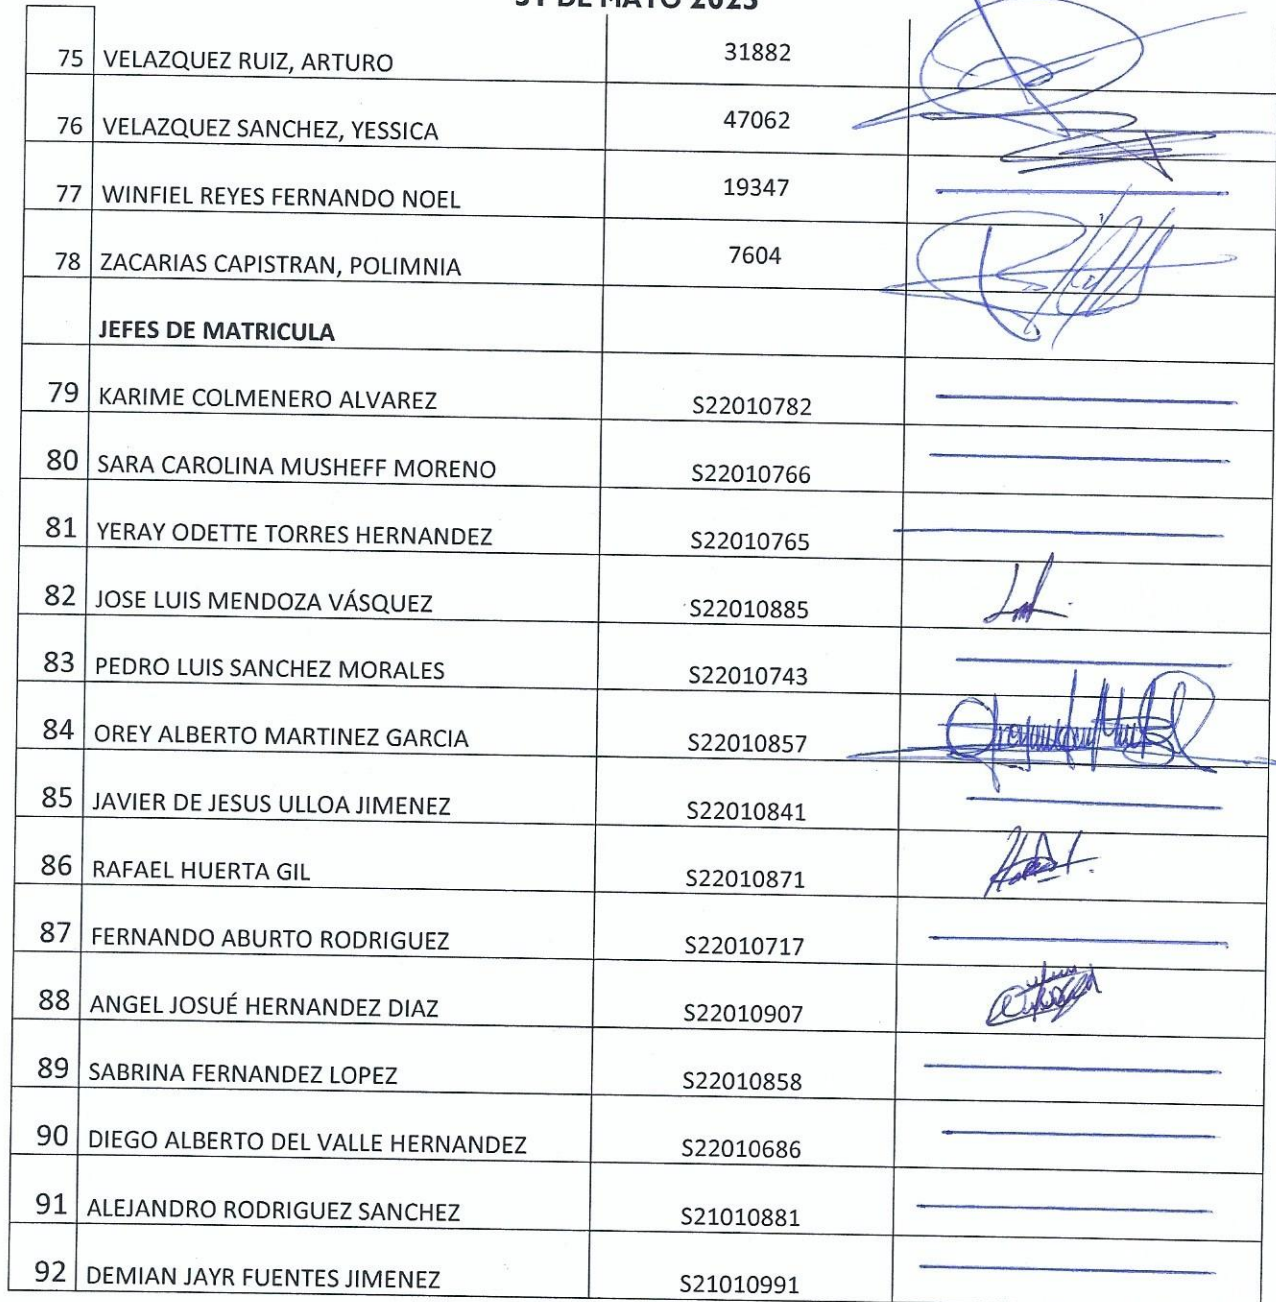 31 DE MAYO 2023
75 VELAZQUEZ RUIZ, ARTURO 31882
76 VELAZQUEZ SANCHEZ, YESSICA 47062
77 WINFIEL REYES FERNANDO NOEL 19347
78 ZACARIAS CAPISTRAN, POLIMNIA 7604
JEFES DE MATRICULA
79 KARIME COLMENERO ALVAREZ S22010782
80 SARA CAROLINA MUSHEFF MORENO S22010766
81 YERAY ODETTE TORRES HERNANDEZ S22010765
82 JOSE LUIS MENDOZA VÁSQUEZ S22010885
83 PEDRO LUIS SANCHEZ MORALES S22010743
84 OREY ALBERTO MARTINEZ GARCIA S22010857
85 JAVIER DE JESUS ULLOA JIMENEZ S22010841
86 RAFAEL HUERTA GIL S22010871
87 FERNANDO ABURTO RODRIGUEZ S22010717
88 ANGEL JOSUÉ HERNANDEZ DIAZ S22010907
89 SABRINA FERNANDEZ LOPEZ S22010858
90 DIEGO ALBERTO DEL VALLE HERNANDEZ S22010686
91 ALEJANDRO RODRIGUEZ SANCHEZ S21010881
92 DEMIAN JAYR FUENTES JIMENEZ S21010991